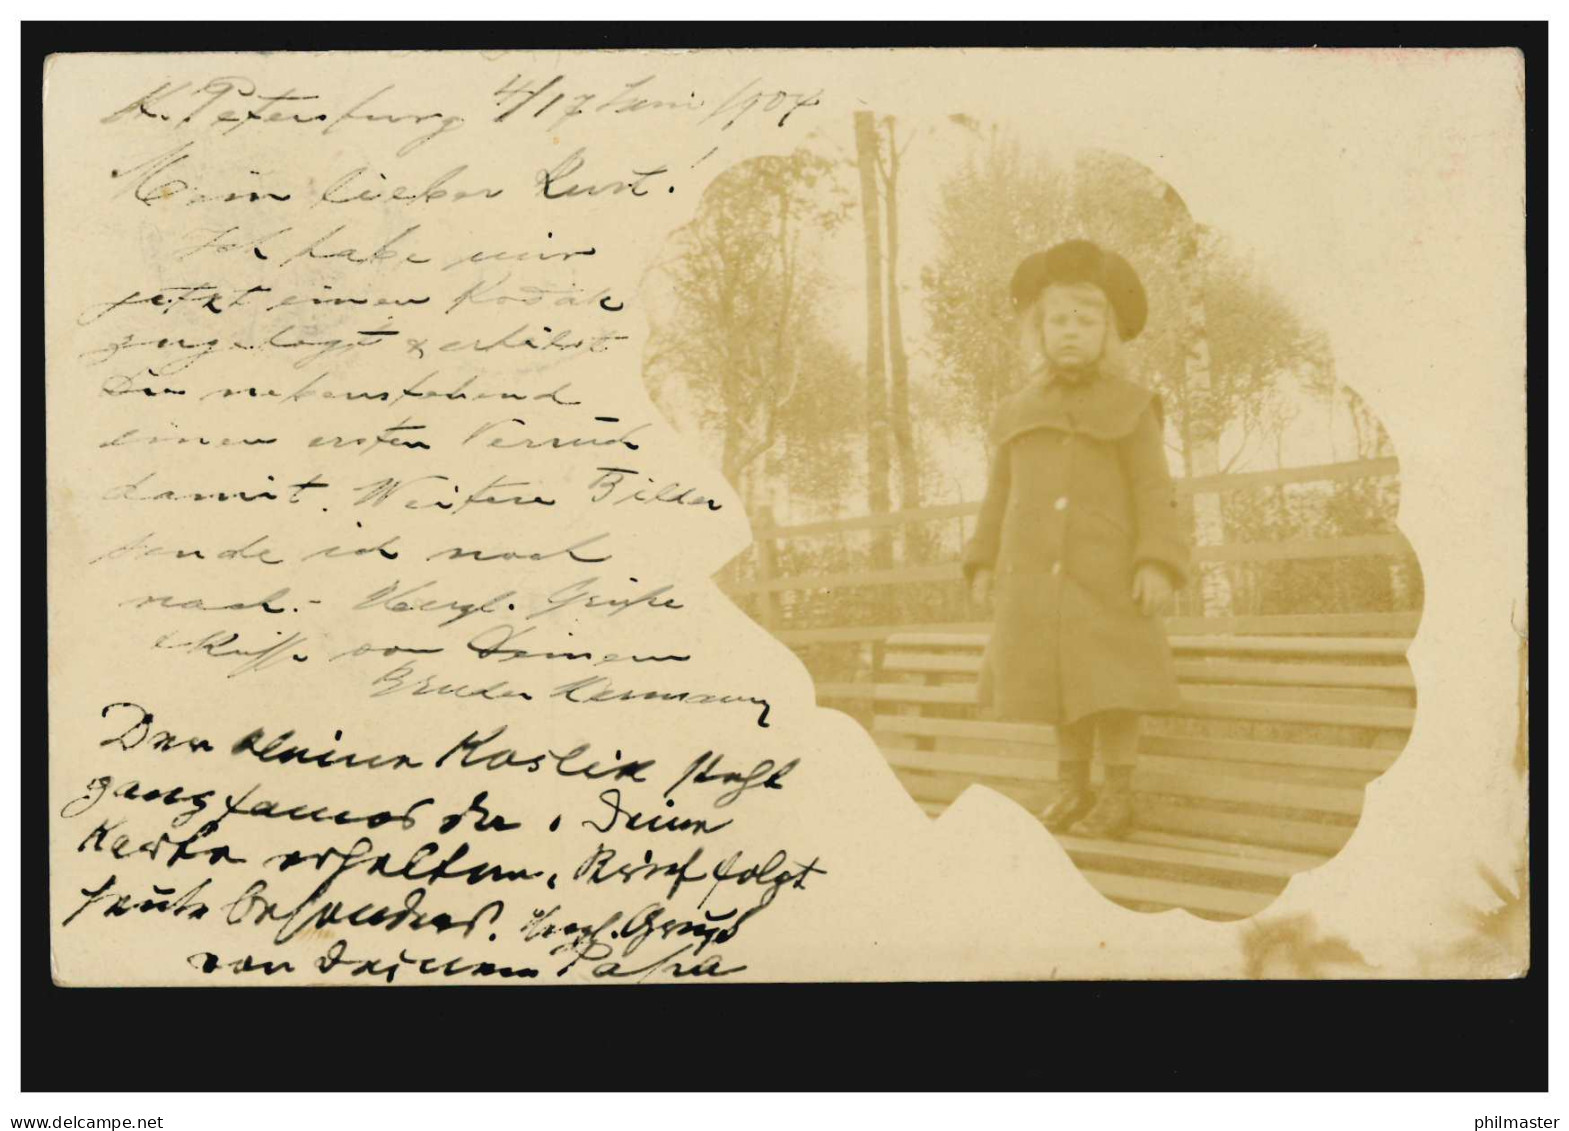 St. Petersburg 4/17 Juni 1904
Mein lieber Kurt!
Ich habe mir
jetzt einen Kodak
zugelegt & erhälst
Du nebenstehend
einen ersten Versuch
damit. Weitere Bilder
sende ich noch
nach. - Herzl. Grüße
& Küsse von Deinem
Bruder Hermann
Der kleine Kostik steht
ganz famos da. Deine
Karte erhalten, Brief folgt
heute besonders. Herzl. Gruß
von Deinem Papa
delcampe.net
philmaster